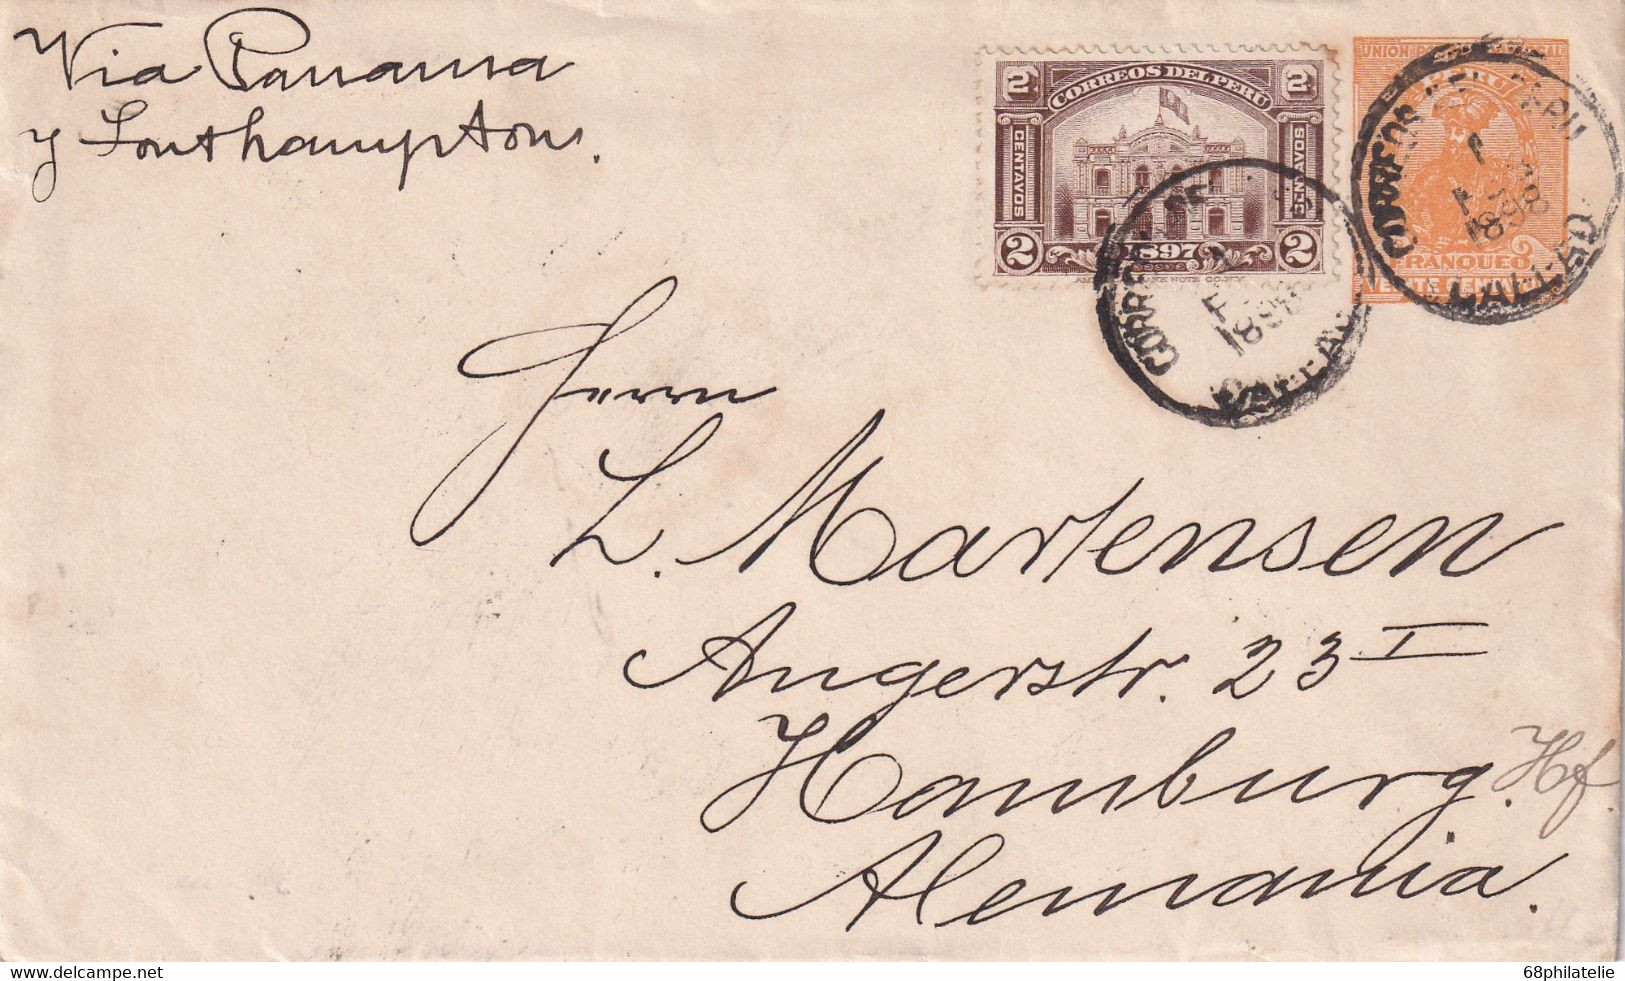 Via Panama
y Southampton.
2 2
CORREOS DEL PERU
CENTAVOS CENTAVOS
2 1897 2
UNION
PERU
FRANQUEO
VEINTE CENTAVOS
CORREOS DEL PERU
1
1898
CALLAO
CORREOS
1
1898
CALLAO
Herrn
L. Martensen
Angerstr. 23 I
Hamburg. Hf.
Alemania.
delcampe.net
68philatelie